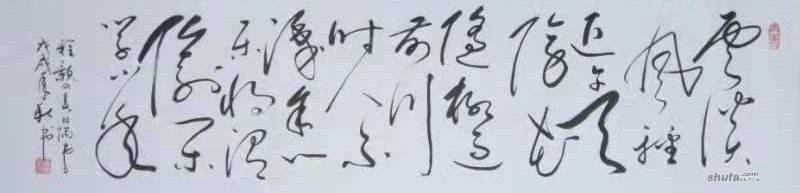 雲淡
风轻
近午天
傍花
随柳过
前川
时人不
识余心
乐将谓
偷闲
学少年
程颢の春日偶书
戊戌年秋书
shufa.com